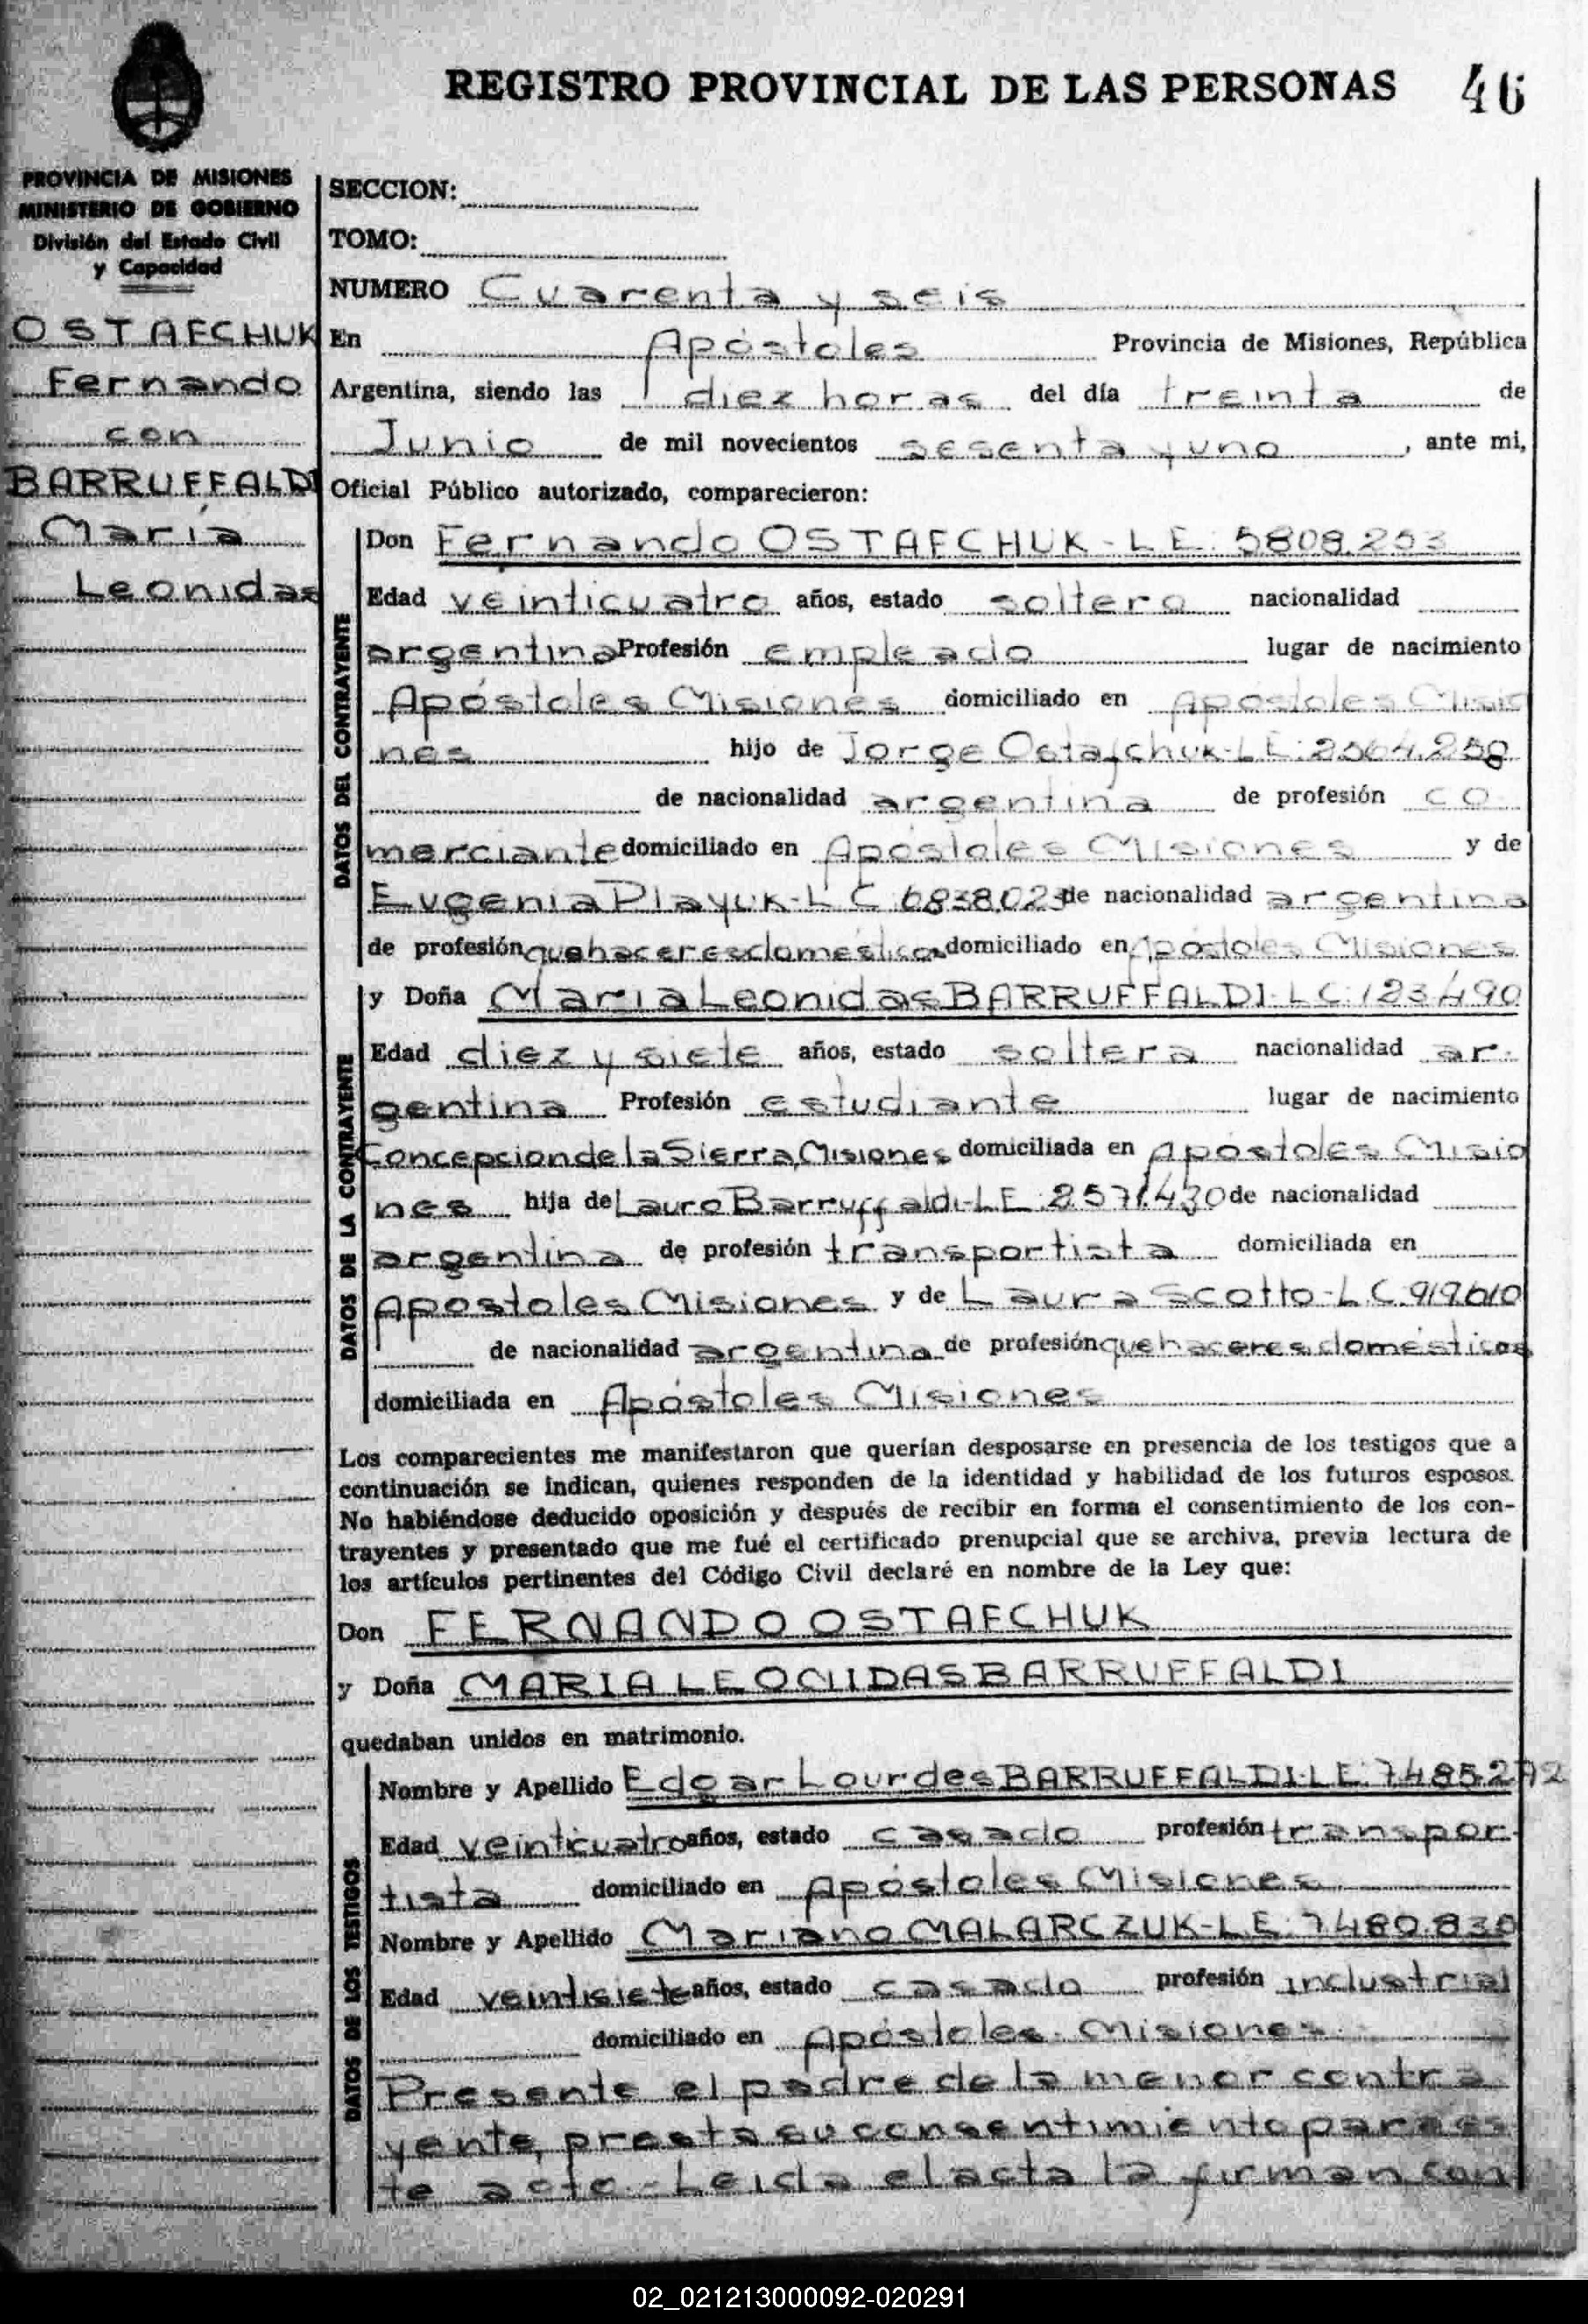 REGISTRO PROVINCIAL DE LAS PERSONAS 46
PROVINCIA DE MISIONES
MINISTERIO DE GOBIERNO
División del Estado Civil
y Capacidad
OSTAFCHUK
Fernando
con
BARRUFFALDI
María
Leonidas
SECCION:
TOMO:
NUMERO Cuarenta y seis
En Apóstoles Provincia de Misiones, República
Argentina, siendo las diez horas del día treinta de
Junio de mil novecientos sesenta y uno, ante mi,
Oficial Público autorizado, comparecieron:
DATOS DEL CONTRAYENTE
Don Fernando OSTAFCHUK - L E: 5808.253
Edad veinticuatro años, estado soltero nacionalidad
argentina Profesión empleado lugar de nacimiento
Apóstoles Misiones domiciliado en Apóstoles Misio
nes hijo de Jorge Ostafchuk-LE: 2564.258
de nacionalidad argentina de profesión co
merciante domiciliado en Apóstoles Misiones y de
Eugenia Playuk-L C 6838023 de nacionalidad argentina
de profesión quehaceres domésticos domiciliado en Apóstoles Misiones
DATOS DE LA CONTRAYENTE
y Doña María Leonidas BARRUFFALDI-LC:123490
Edad diez y siete años, estado soltera nacionalidad ar-
gentina Profesión estudiante lugar de nacimiento
Concepcion de la Sierra, Misiones domiciliada en Apóstoles Misio
nes hija de Lauro Barruffaldi-LE:2571.430 de nacionalidad
argentina de profesión transportista domiciliada en
Apostoles Misiones y de Laura Scotto-L.C.919610
de nacionalidad argentina de profesión quehaceres domésticos
domiciliada en Apóstoles Misiones
Los comparecientes me manifestaron que querían desposarse en presencia de los testigos que a
continuación se indican, quienes responden de la identidad y habilidad de los futuros esposos.
No habiéndose deducido oposición y después de recibir en forma el consentimiento de los con-
trayentes y presentado que me fué el certificado prenupcial que se archiva, previa lectura de
los artículos pertinentes del Código Civil declaré en nombre de la Ley que:
Don FERNANDO OSTAFCHUK
y Doña MARIA LEONIDAS BARRUFFALDI
quedaban unidos en matrimonio.
DATOS DE LOS TESTIGOS
Nombre y Apellido Edgar Lourdes BARRUFFALDI-LE:7.485.272
Edad veinticuatro años, estado casado profesión transpor-
tista domiciliado en Apóstoles Misiones
Nombre y Apellido Mariano MALARCZUK-L.E:7.480.830
Edad veintisiete años, estado casado profesión industrial
domiciliado en Apóstoles. Misiones.
Presente el padre de la menor contra
yente, presta su consentimiento para es
te acto.-Leida el acta la firman con
02_021213000092-020291